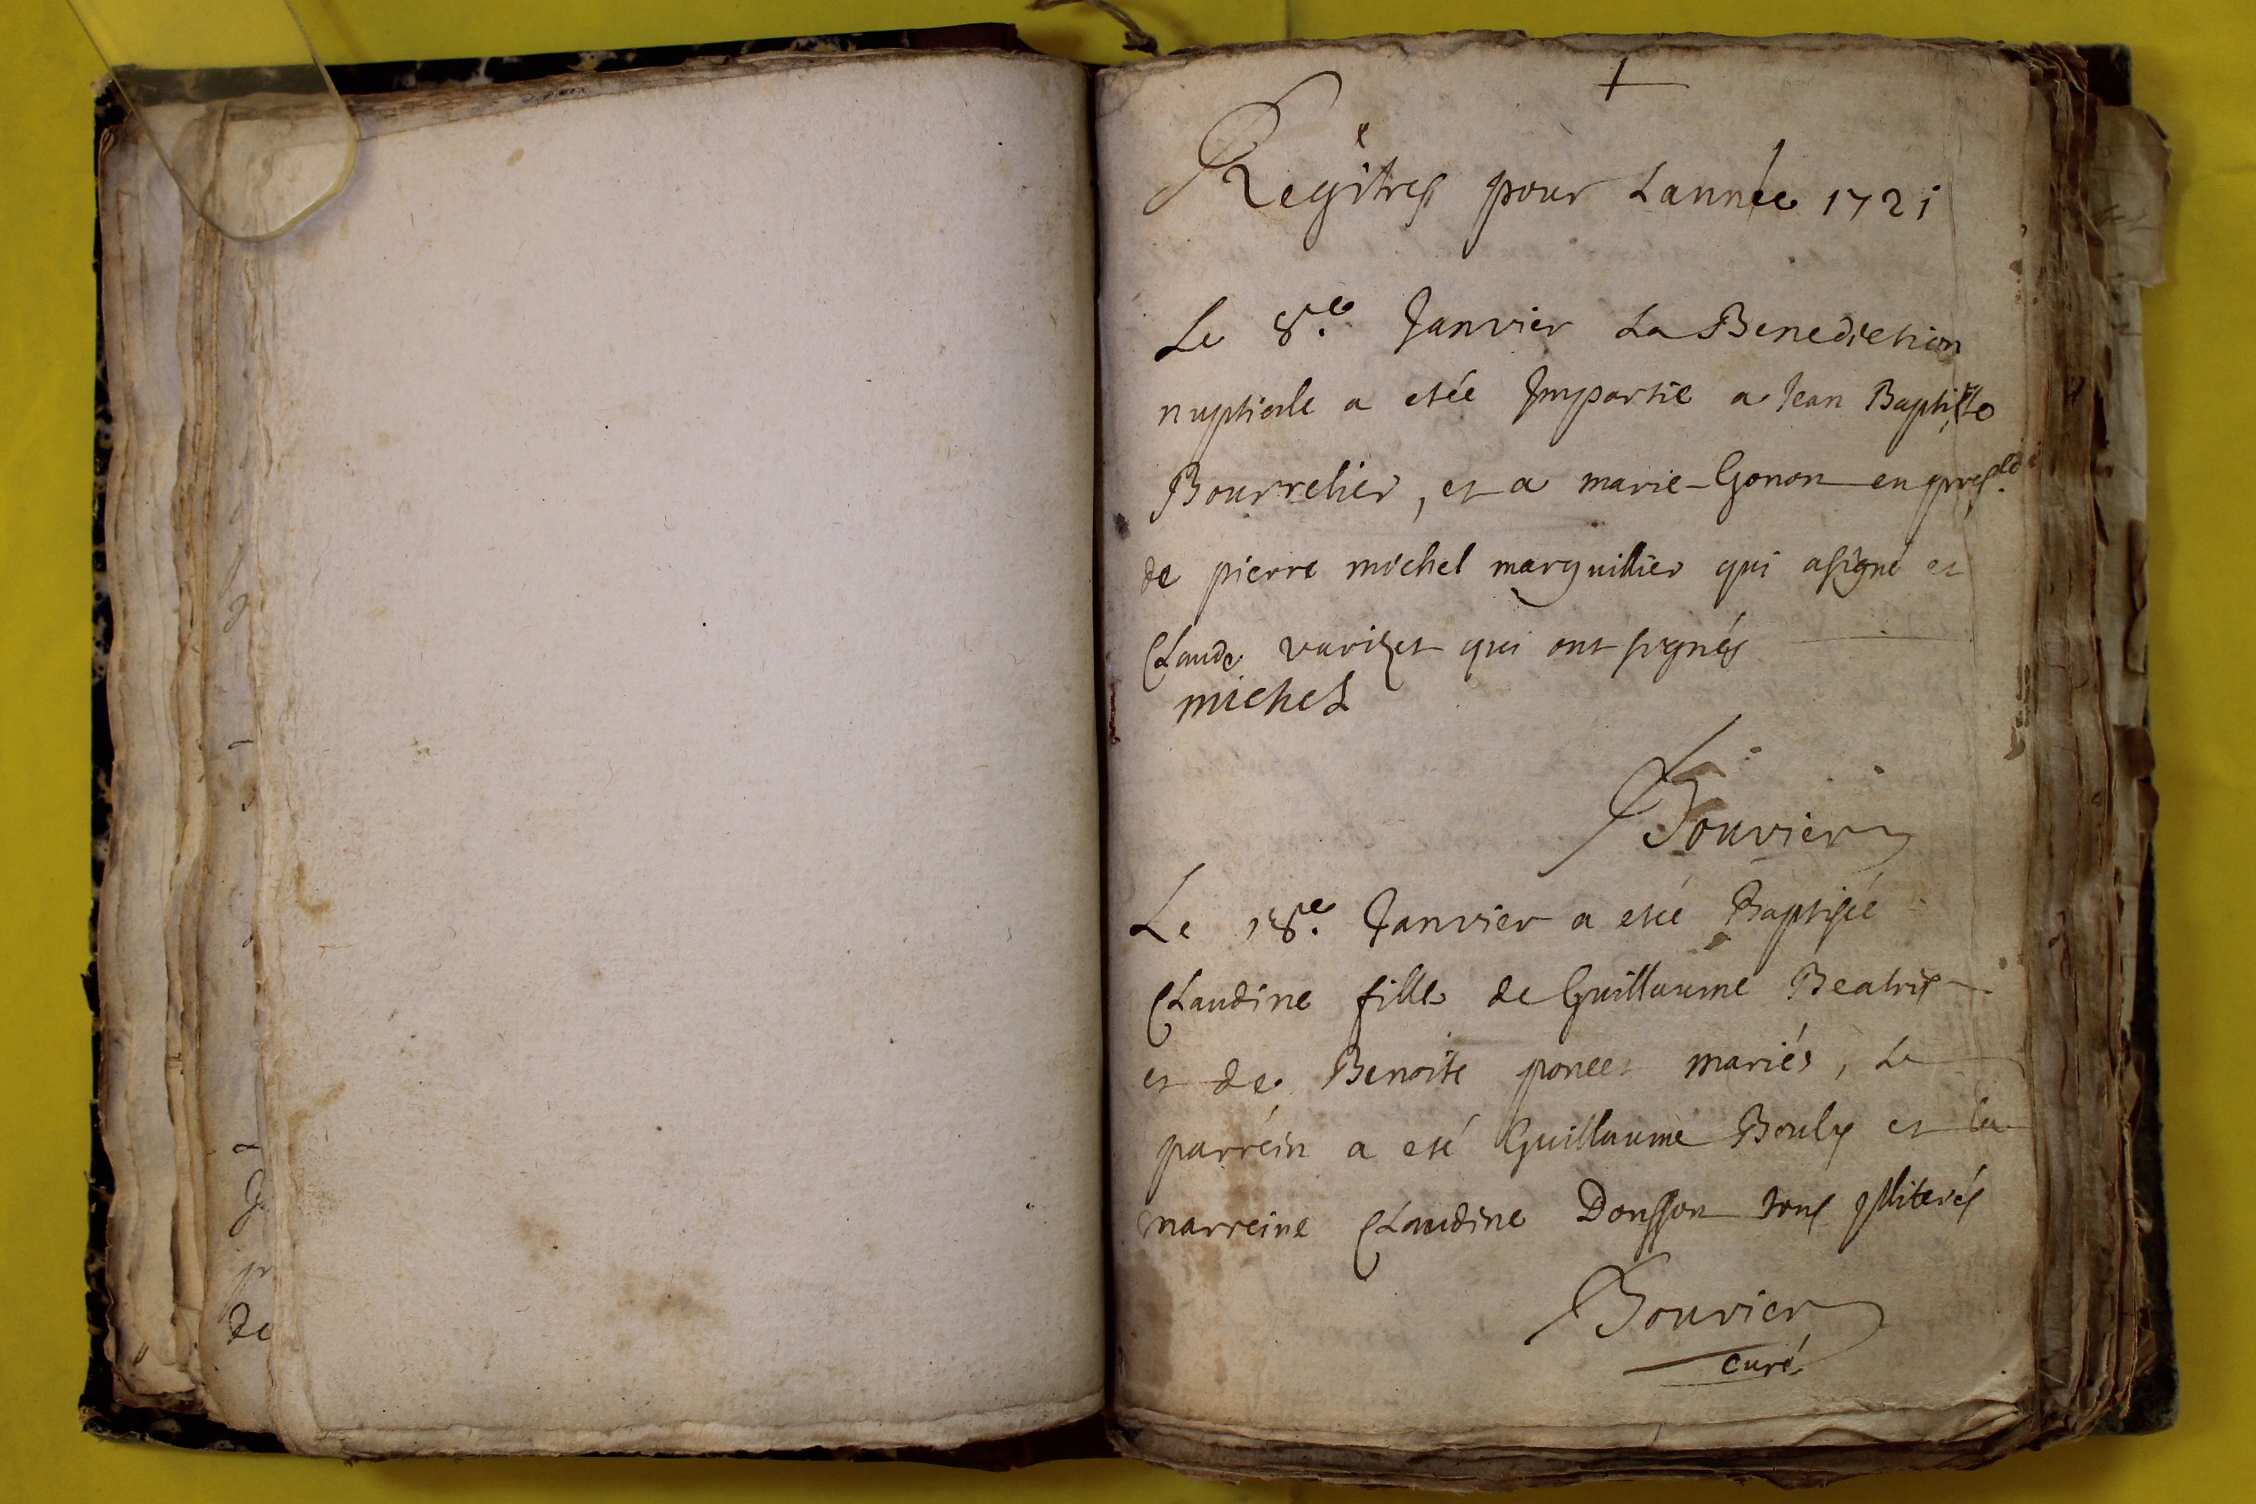 +
Regitres pour Lannée 1721
Le 8.e Janvier La Benediction
nuptiale a etée Impartie a Jean Baptiste
Bourrelier, et a marie Gonon en pres.
de pierre michel marguillier qui a signé et
Claude varizet qui ont signés
michel
Bouvier
Le 18.e Janvier a eteé Baptiseé
Claudine fille de Guillaume Beatrix
et de Benoite poncet mariés, Le
parrein a eté Guillaume Bouly et la
marreine Claudine Dousson tous illiterés
Bouvier
curé
de